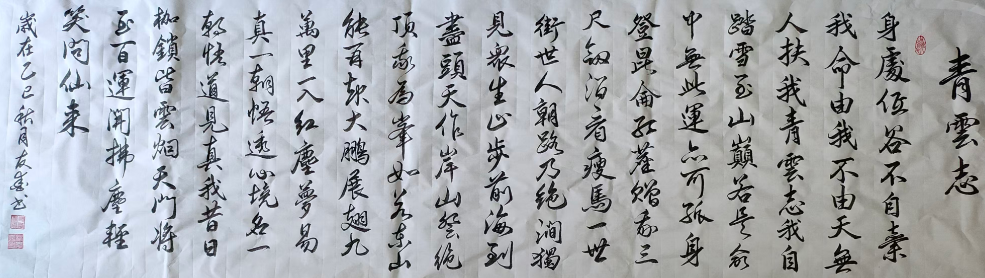 青雲志
身處低谷不自棄
我命由我不由天無
人扶我青雲志我自
踏雪至山巔若是命
中無此運亦可孤身
登昆侖紅塵贈我三
尺劍酒看瘦馬一世
街世人朝路乃絕澗獨
見衆生止步前海到
盡頭天作岸山登絕
頂我為峯如若東山
能再起大鵬展翅九
萬里一入紅塵夢易
真一朝悟透心境名一
朝悟道見真我昔日
枷鎖皆雲烟天門將
至百運開拂塵輕
笑問仙来
歲在乙巳秋月友書